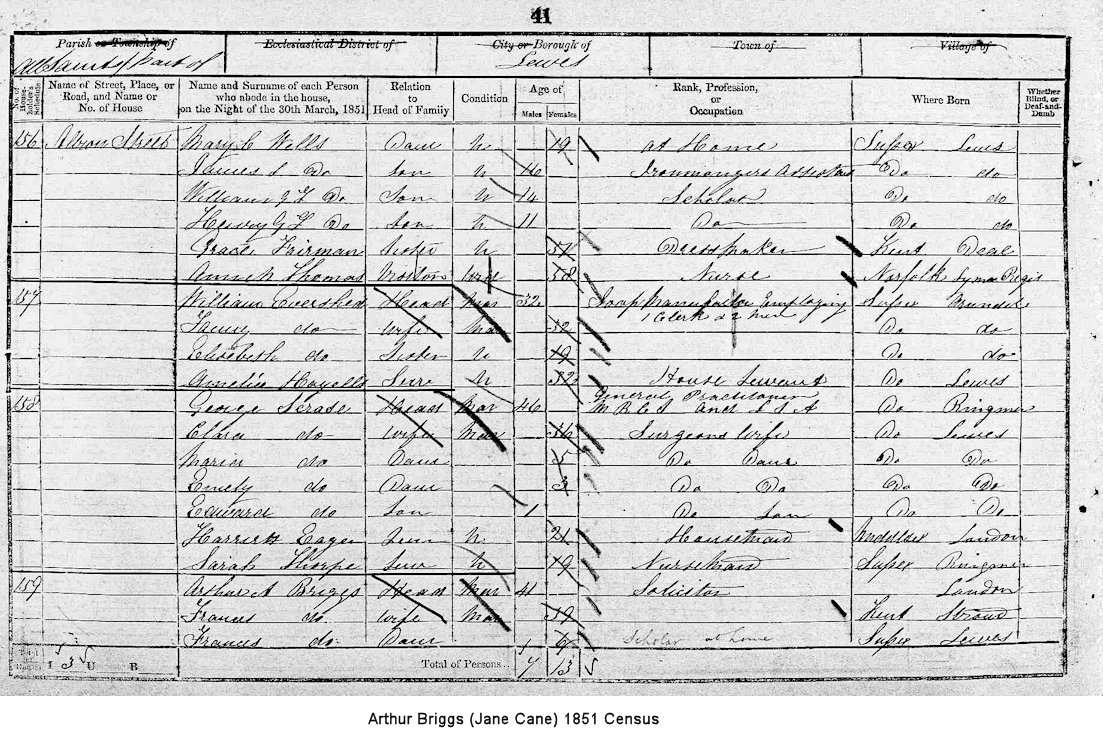 41
Parish or Township of Ecclesiastical District of City or Borough of Town of Village of
All Saints part of Lewes
No. of House-holder's Schedule Name of Street, Place, or Road, and Name or No. of House Name and Surname of each Person who abode in the house, on the Night of the 30th March, 1851 Relation to Head of Family Condition Age of Males Females Rank, Profession, or Occupation Where Born Whether Blind, or Deaf-and-Dumb
156 Albion Street Mary C Wells Daur U 19 at Home Sussex Lewes
James S Do Son U 16 Ironmongers Assistant Do do
William G F Do Son U 14 Scholar Do do
Henry G F Do Son U 11 Do Do do
Grace Fairman Sister U 51 Dressmaker Kent Deal
Thomas 58 Nurse Norfolk Lynn Regis
157 William Evershed Head Mar 32 Soap Manufacter Employing Sussex Arundel
1 Clerk & 2 men
Fanny do Wife Mar 32 Do do
Elizabeth do Sister U 19 Do do
Amelia Serv U 32 House Servant Do Lewes
General Practitioner
158 George Scrase Head Mar 46 M R C S and L S A Do Ringmer
Clara do Wife Mar 36 Surgeons Wife Do Lewes
Maria do Daur 5 Do Daur Do Do
Emely do Daur 3 Do Do Do Do
Edward do Son 1 Do Son Do Do
Harriett Eager Serv U 21 Housemaid Middlesex London
Sarah Thorpe Serv U 19 Nursemaid Sussex Ringmer
159 Arthur A Briggs Head Mar 41 Solicitor London
Frances do Wife Mar 39 Kent Stroud
Frances do Daur 6 Scholar at home Sussex Lewes
Total of Houses I 3 U B Total of Persons.. 7 13
Arthur Briggs (Jane Cane) 1851 Census